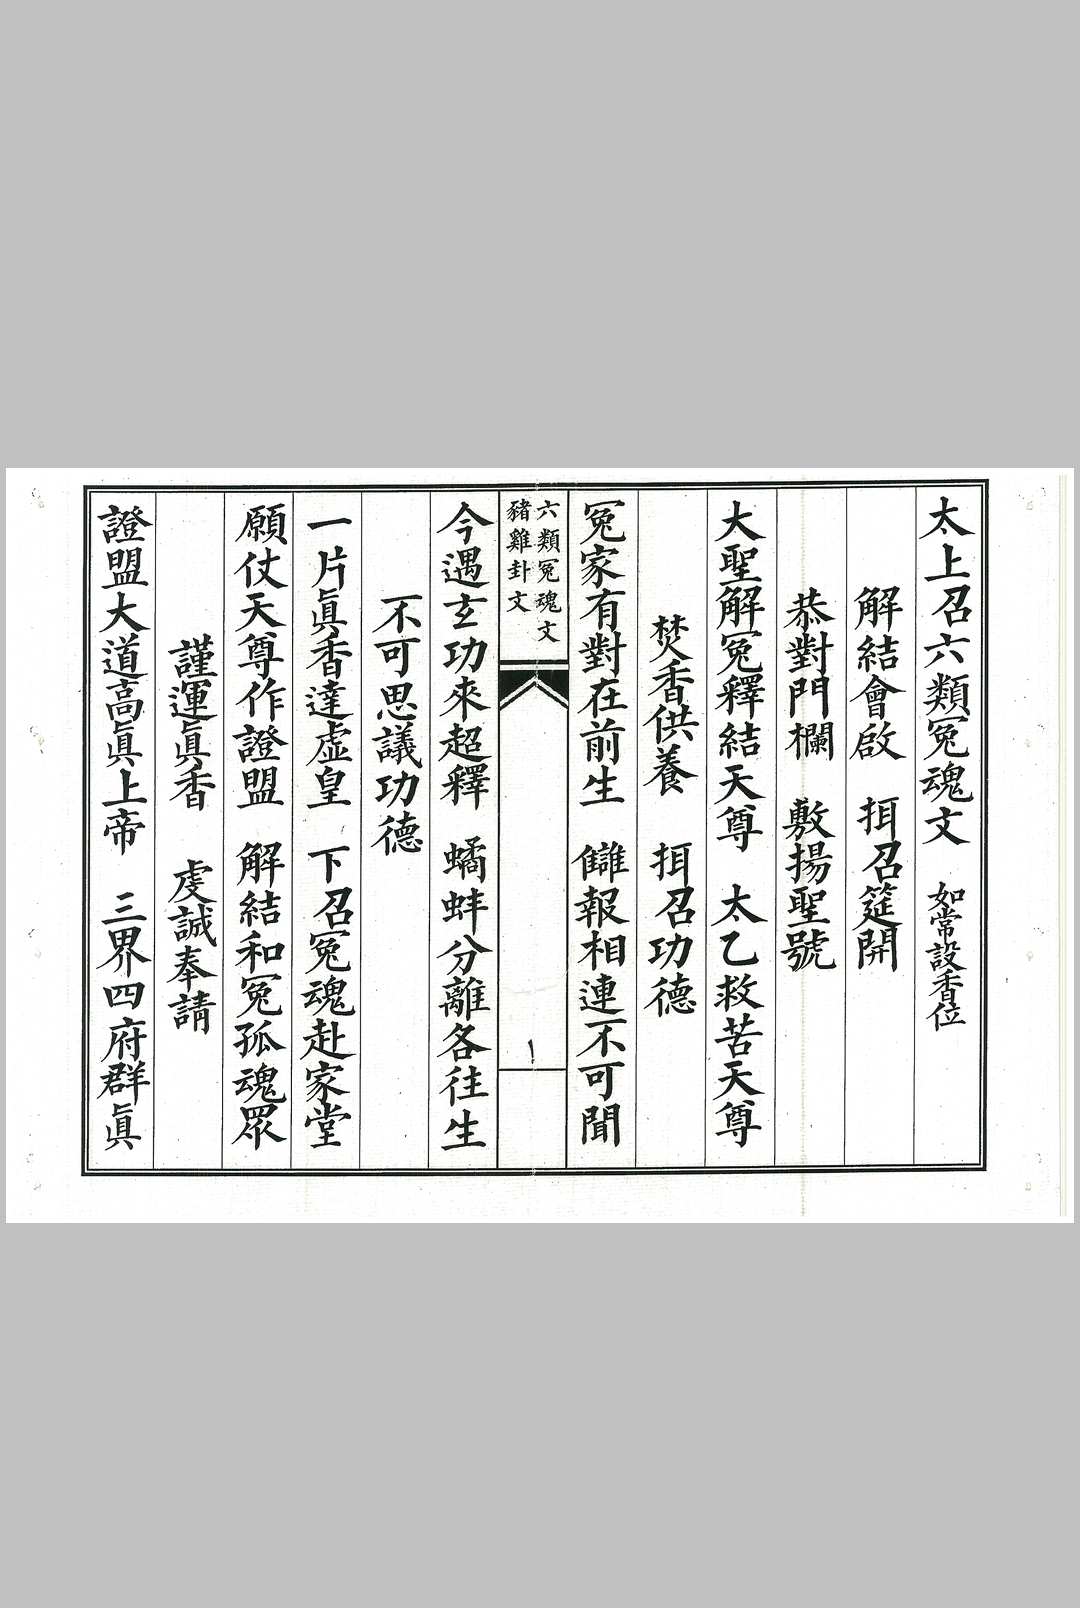 太上召六類冤魂文　如常設香位
解結會啟　拑召筵開
恭對門欄　敷揚聖號
大聖解冤釋結天尊　太乙救苦天尊
焚香供養　拑召功德
冤家有對在前生　讎報相連不可聞
六類冤魂文
豬雞卦文
1
今遇玄功來超釋　蟠蚌分離各往生
不可思議功德
一片眞香達虛皇　下召冤魂赴家堂
願仗天尊作證盟　解結和冤孤魂眾
謹運眞香　虔誠奉請
證盟大道高眞上帝　三界四府群眞